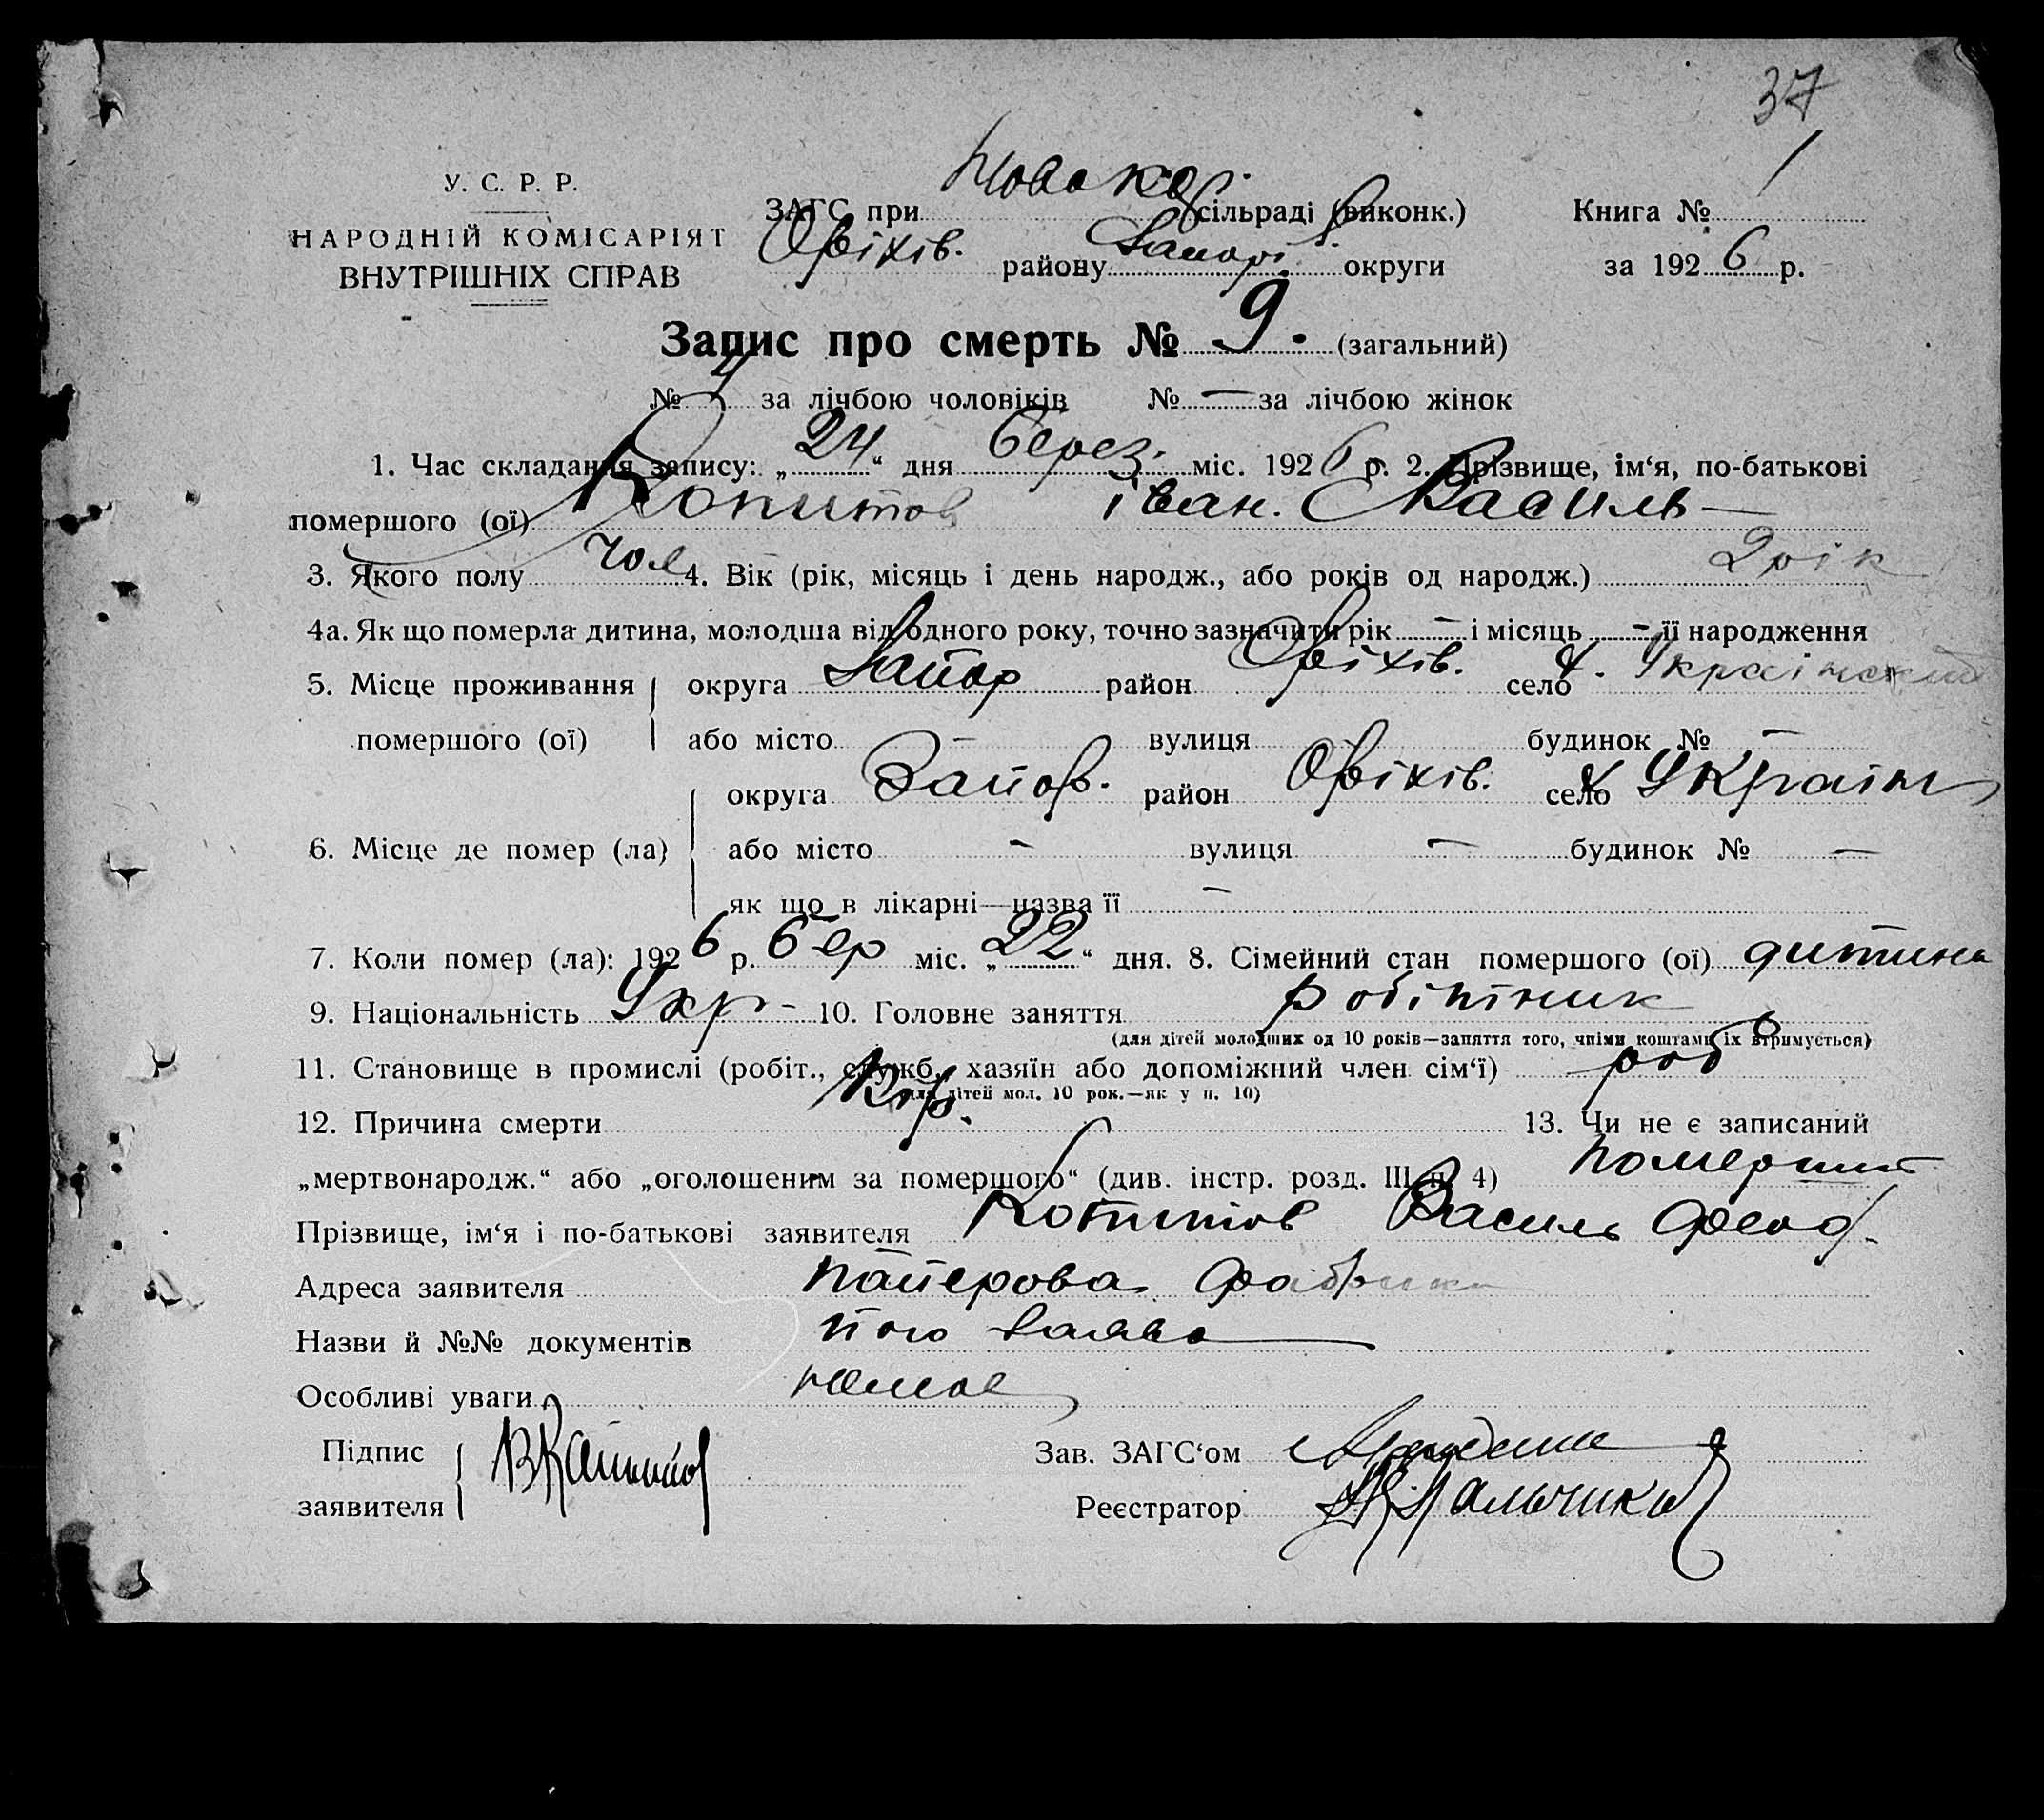 37
У. С. Р. Р.
НАРОДНІЙ КОМІСАРІЯТ
ВНУТРІШНІХ СПРАВ
ЗАГС при Новокар. сільраді (виконк.)
Оріхів. району Запорі округи
Книга № 1
за 1926 р.
Запис про смерть № 9. (загальний)
№ 4 за лічбою чоловіків № — за лічбою жінок
1. Час складання запису: „24“ дня берез. міс. 1926 р. 2. Прізвище, ім‘я, по-батькові
помершого (ої) Копитов Іван. Василь —
3. Якого полу чол 4. Вік (рік, місяць і день народж., або років од народж.) 2 рік
4а. Як що померла дитина, молодша від одного року, точно зазначити рік — і місяць - її народження
5. Місце проживання округа Запор район Оріхів. село х. Український
помершого (ої) або місто - вулиця будинок № —
округа Запор. район Оріхів. село х Україн
6. Місце де помер (ла) або місто - вулиця — будинок № —
як що в лікарні—назва її —
7. Коли помер (ла): 1926 р. бер міс. „22“ дня. 8. Сімейний стан помершого (ої) дитина
9. Національність Укр - 10. Головне заняття робітник
(для дітей молодших од 10 років—заняття того, чпіми коштами їх втримується)
11. Становище в промислі (робіт., служб., хазяїн або допоміжний член сім‘ї) роб
(для дітей мол. 10 рок.—як у п. 10)
12. Причина смерти Кір. 13. Чи не є записаний
„мертвонародж.“ або „оголошеним за помершого“ (див. інстр. розд. III п. 4) померший
Прізвище, ім‘я і по-батькові заявителя Копитов Василь Феод.
Адреса заявителя паперова фабрика
Назви й №№ документів його заява
Особливі уваги немає
Підпис Зав. ЗАГС‘ом
заявителя ВКопитов Реєстратор